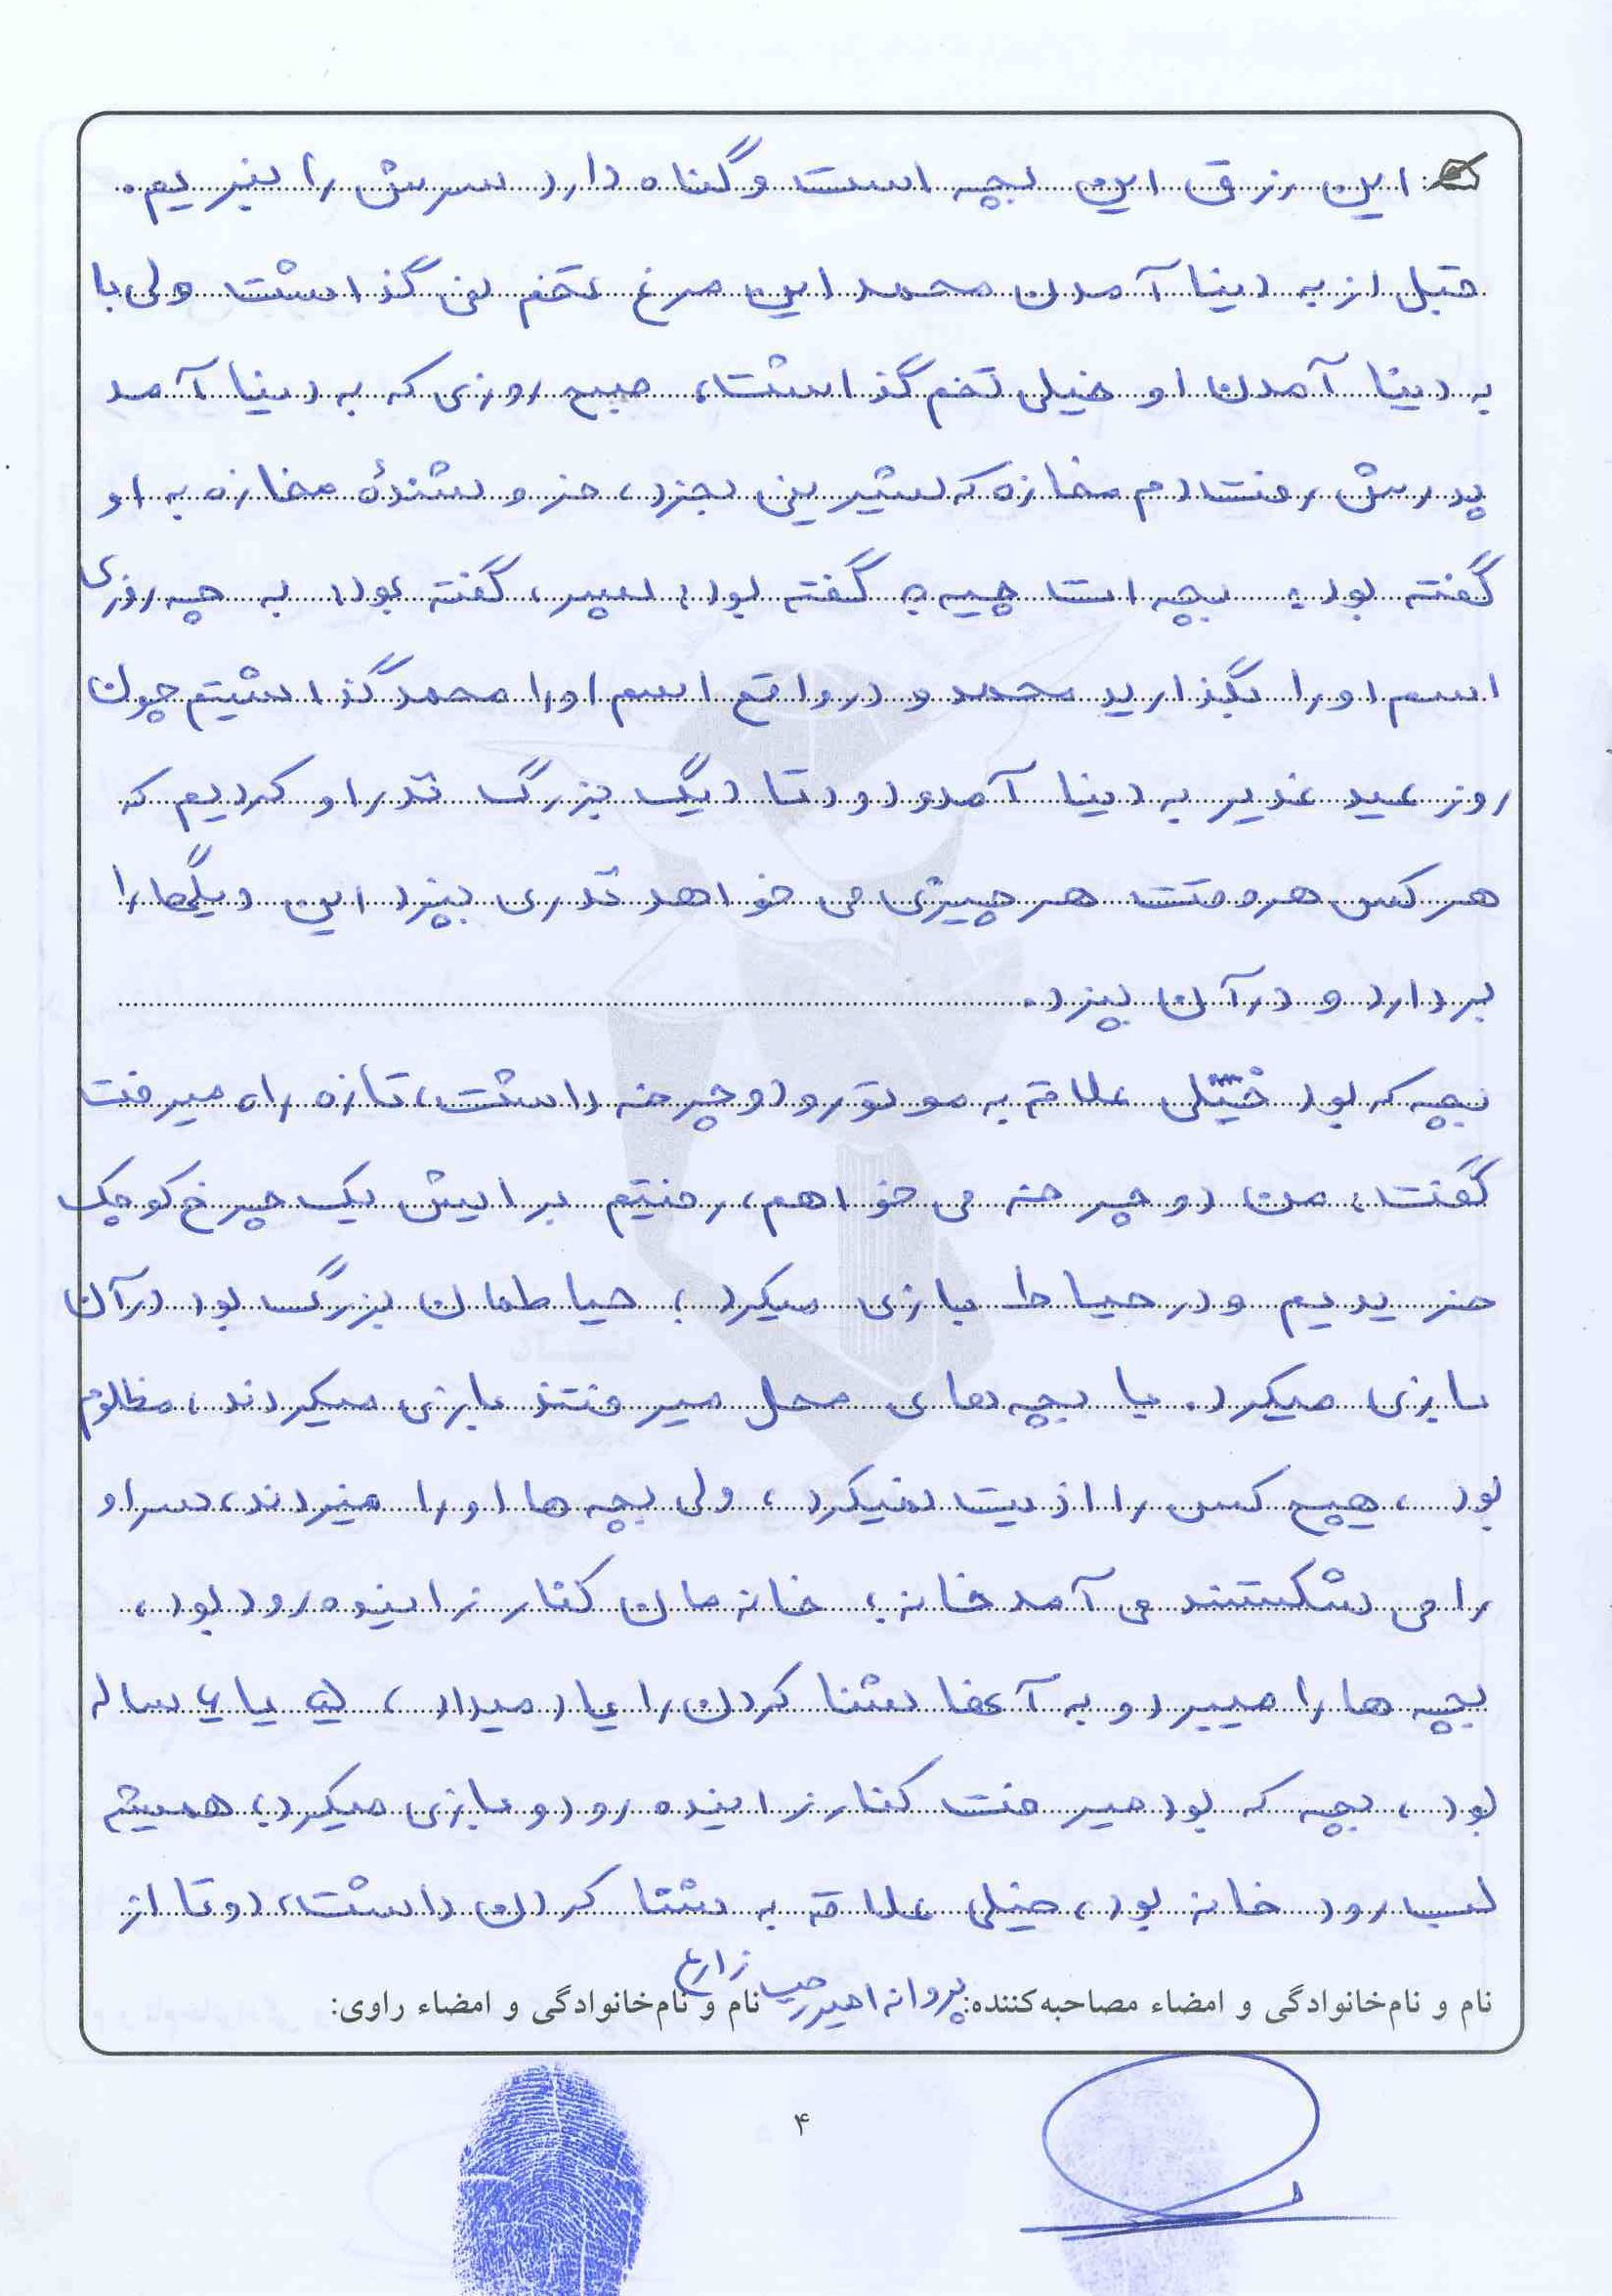 این رزق این بچه است و گناه دارد سرش را ببریم.
قبل از به دنیا آمدن محمد این مرغ تخم نمی گذاشت ولی با
به دنیا آمدن او خیلی تخم گذاشت، صبح روزی که به دنیا آمد
پدرش رفت دم مغازه که شیرینی بخرد، فروشندهٔ مغازه به او
گفته بود: بچه ات چیه؟ گفته بود: پسر، گفته بود: به چه روزی
اسم او را بگذارید محمد و در واقع اسم او را محمد گذاشتیم چون
روز عید غدیر به دنیا آمد و دو تا دیگ بزرگ نذر او کردیم که
هر کس هر وقت هر چیزی می خواهد نذری بپزد این دیگها را
بردارد و در آن بپزد.
بچه که بود خیلی علاقه به موتور و دوچرخه داشت، تازه راه میرفت
گفت: من دوچرخه می خواهم، رفتیم برایش یک چرخ کوچک
خریدیم و در حیاط بازی میکرد؛ حیاطمان بزرگ بود در آن
بازی میکرد. با بچه های محل میرفتند بازی میکردند، مظلوم
بود، هیچ کس را اذیت نمیکرد، ولی بچه ها او را میزدند، سر او
را می شکستند می آمد خانه؛ خانه مان کنار زاینده رود بود،
بچه ها را میبرد و به آنها شنا کردن را یاد میداد، ۵ یا ۶ ساله
بود، بچه که بود میرفت کنار زاینده رود و بازی میکرد، همیشه
لب رود خانه بود، خیلی علاقه به شنا کردن داشت، دو تا از
نام و نام‌خانوادگی و امضاء مصاحبه‌کننده: پروانه امیر زارع نام و نام‌خانوادگی و امضاء راوی:
۴